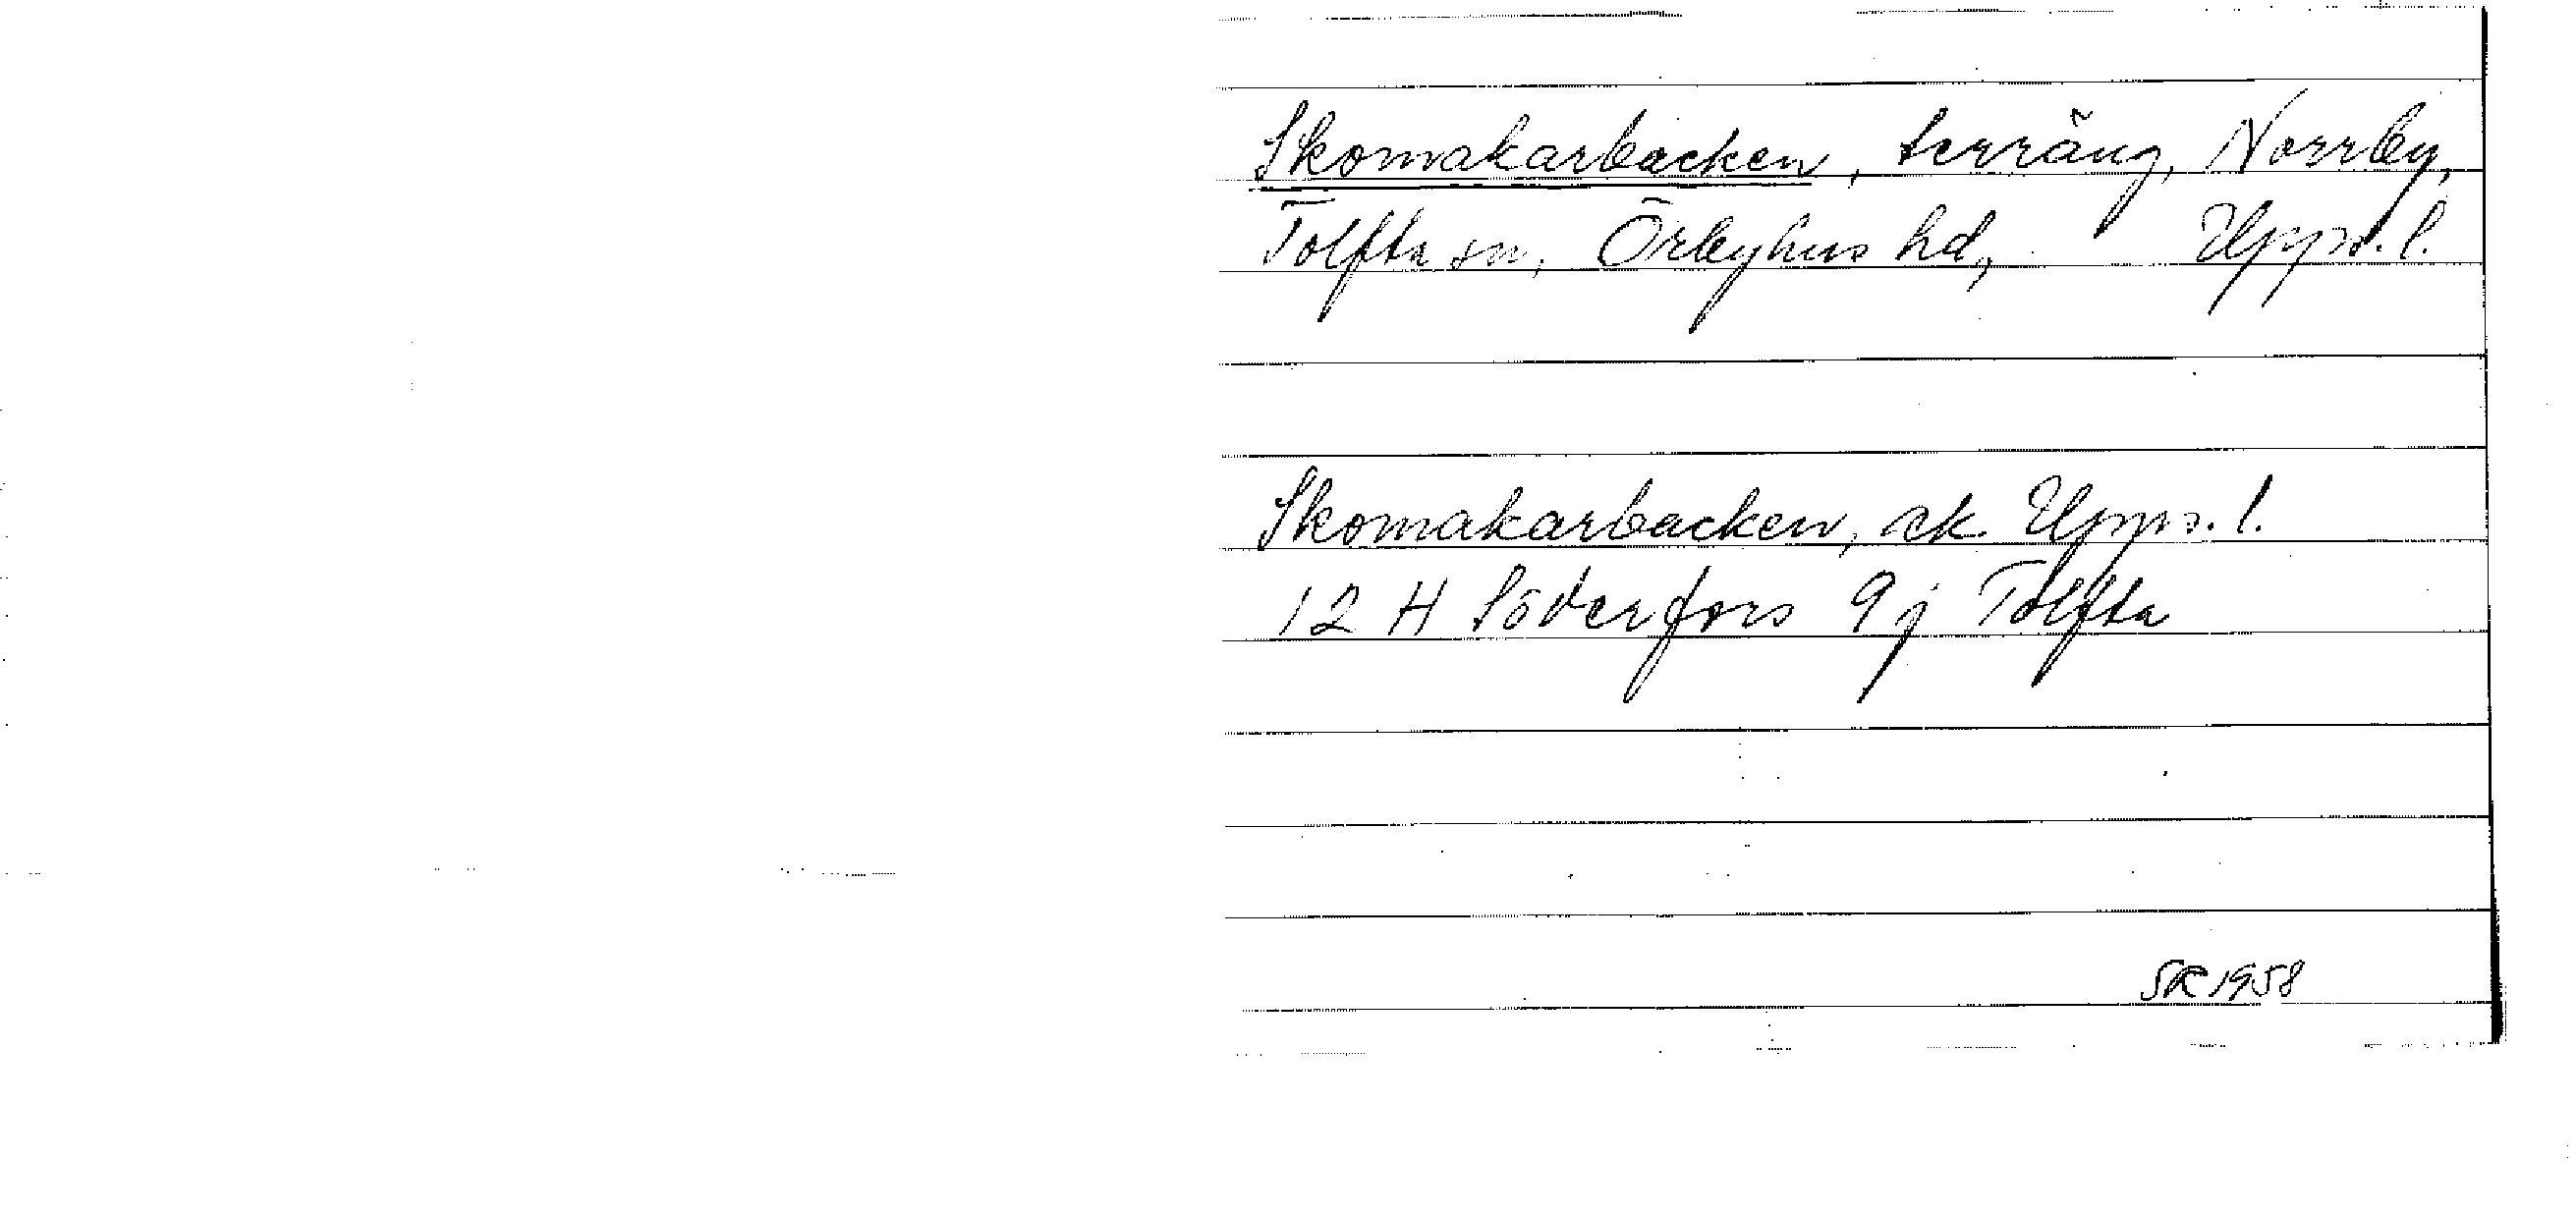 Skomakarbacken, terräng, Norrby,
Tolfta sn, Örbyhus hd, Upps. l.
Skomakarbacken, ek. Upps. l.
12 H Söderfors 9 j Tolfta
SR 1958